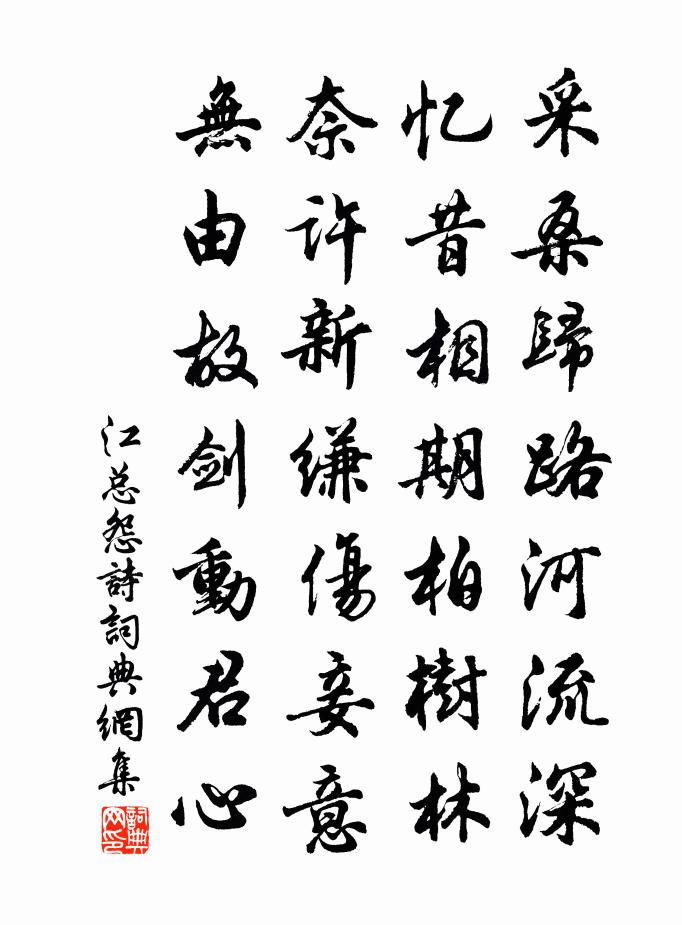 采桑歸路河流深
忆昔相期柏樹林
奈許新縑傷妾意
無由故剑動君心
江总怨詩詞典網集
詞典网印